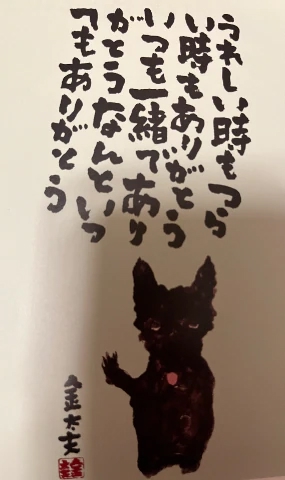 うれしい時もつら
い時もありがとう
いつも一緒であり
がとうなんといっ
てもありがとう
金太夫